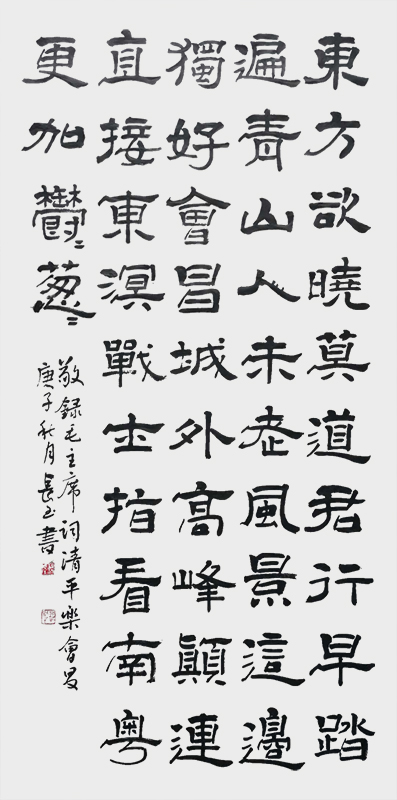 東方欲曉莫道君行早踏
遍青山人未老風景這邊
獨好會昌城外高峰顛連
直接東溟戰士指看南粵
更加鬱〻葱〻
敬錄毛主席詞清平樂會昌
庚子秋月長玉書